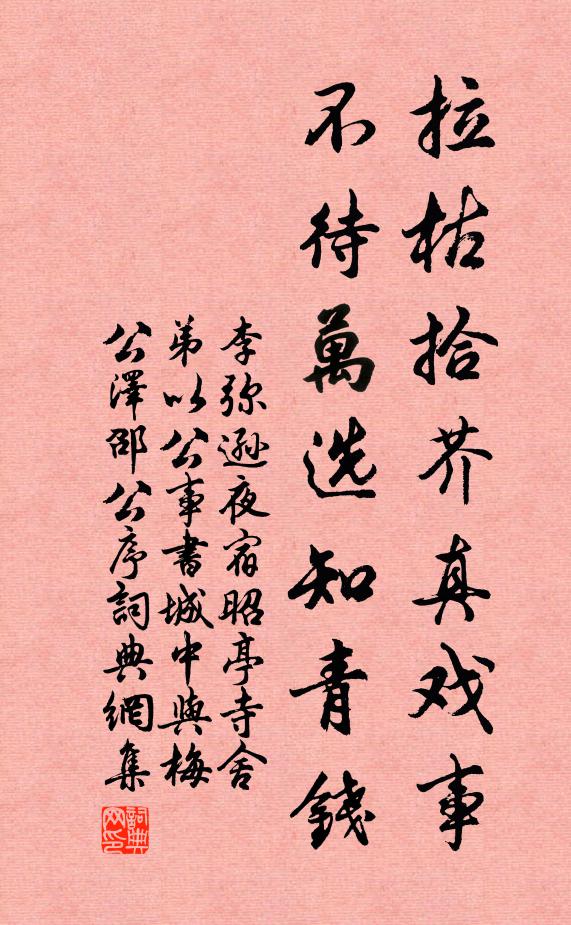 拉枯拾芥真戏事
不待萬选知青錢
李弥遜夜宿昭亭寺舍
弟以公事書城中與梅
公澤邵公序詞典網集
詞典网印